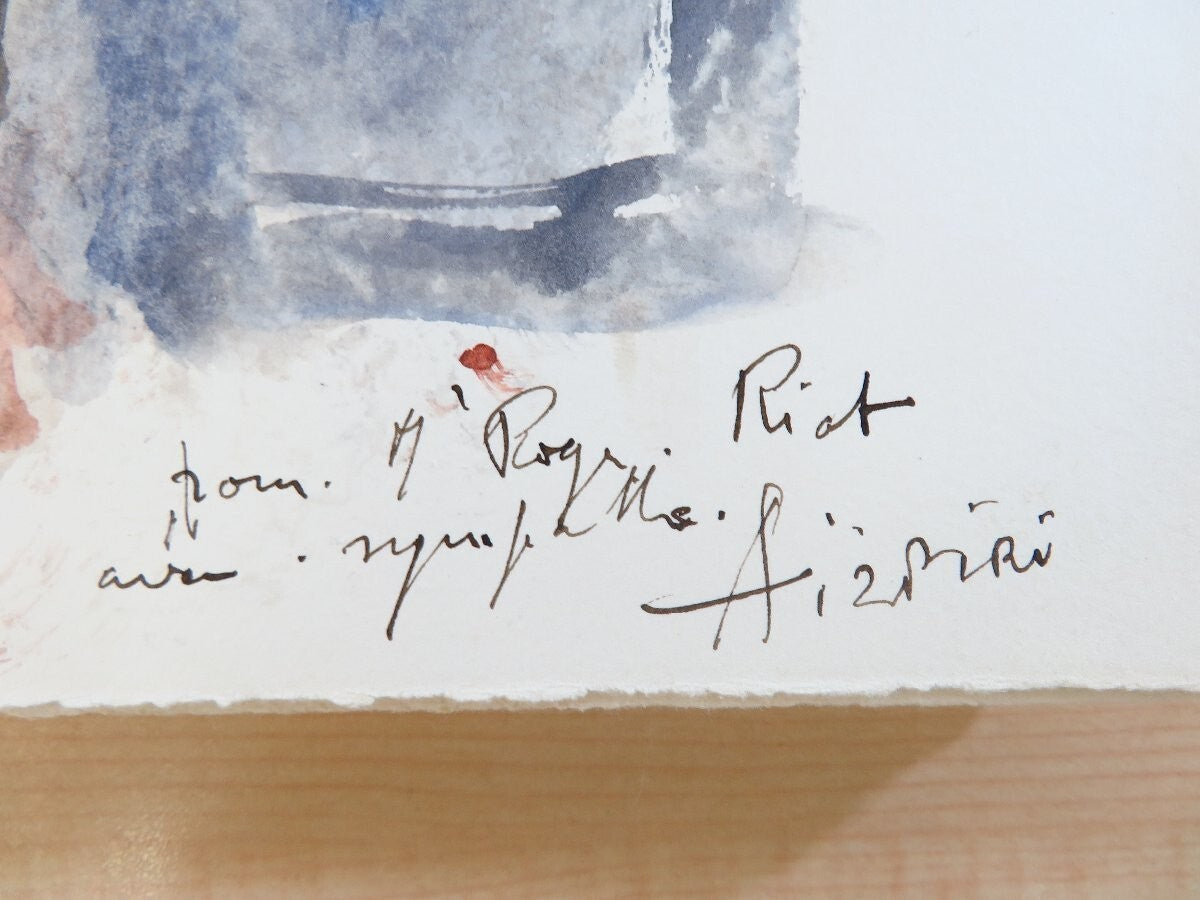 pour Mr Roger Riat
avec sympathie.
Aïzpiri